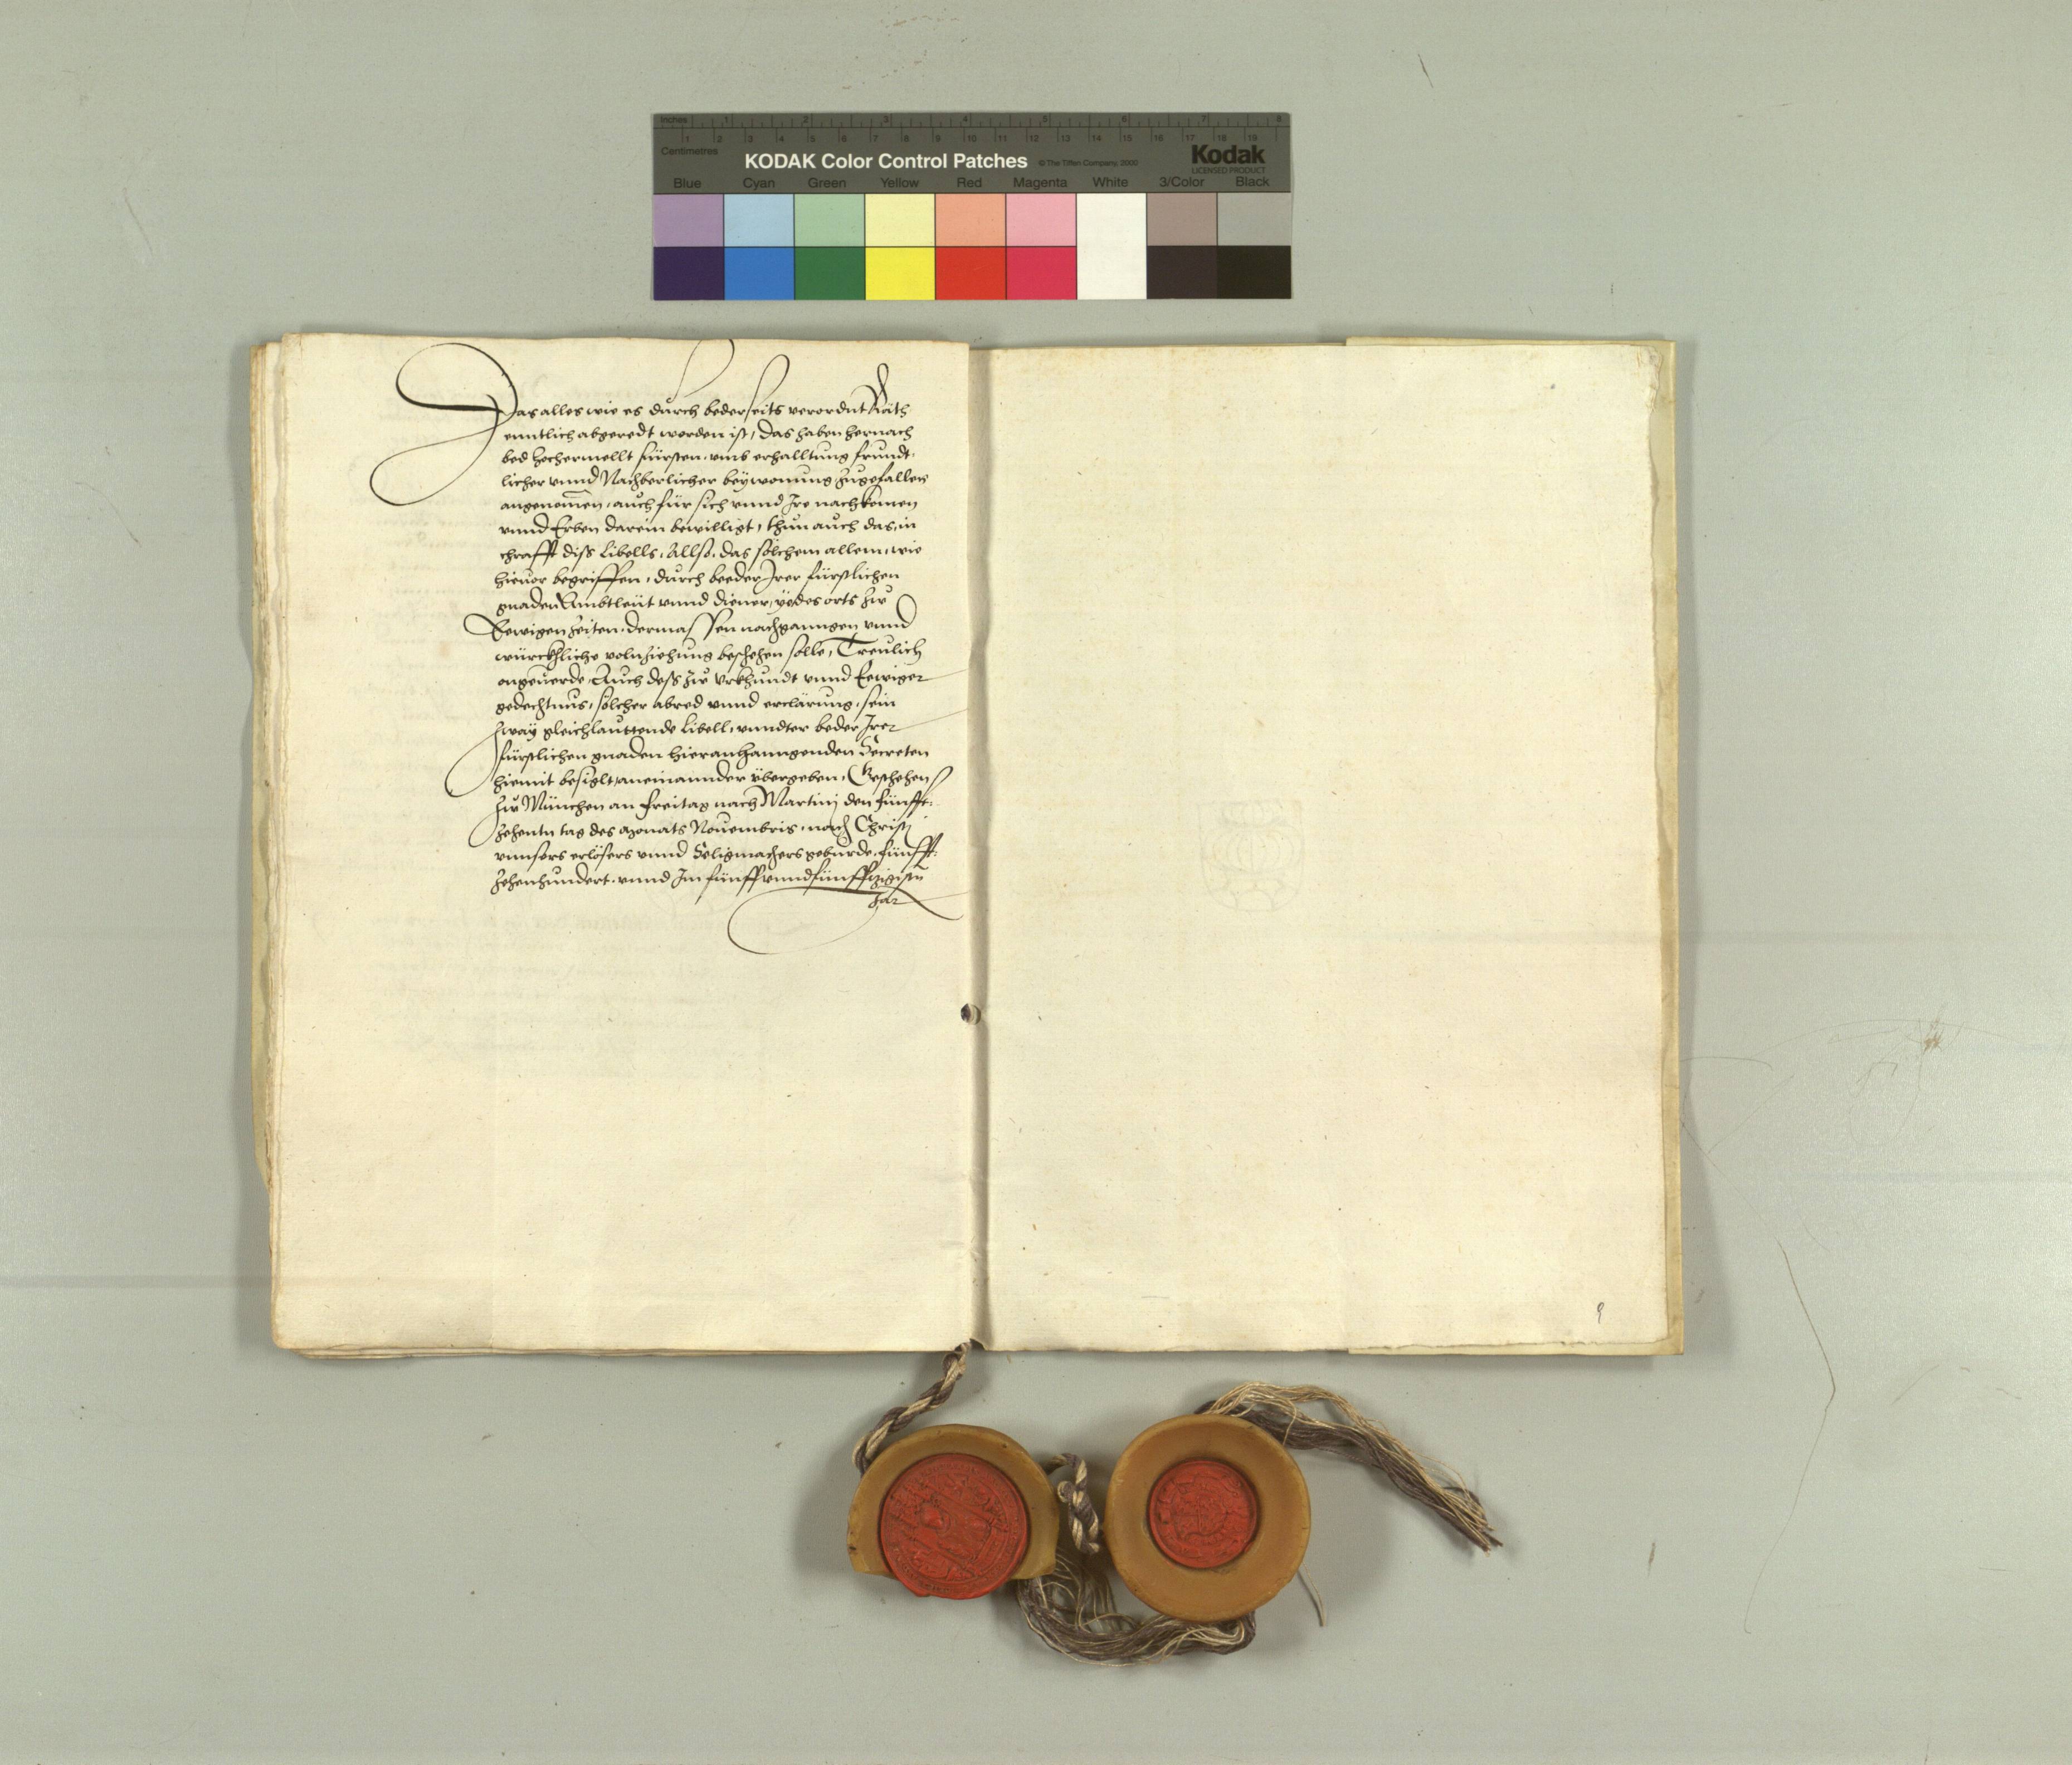 Inches 1 2 3 4 5 6 7 8
1 2 3 4 5 6 7 8 9 10 11 12 13 14 15 16 17 18 19
Centimetres
KODAK Color Control Patches © The Tiffen Company, 2000 Kodak
LICENSED PRODUCT
Blue Cyan Green Yellow Red Magenta White 3/Color Black
Das alles wie es durch bederseits verordnt Räth
enntlich abgeredt worden ist, das haben hernach
bed hochermellt fürsten, umb erhalltung frundt-
licher unnd Nachberlicher beywonung zugefallen
angenomen, auch für sich unnd Ire nachkomen
unnd Erben darein bewilligt, thun auch das, in
chrafft diss Libells, Allso, das solchem allem, wie
hievor begriffen, durch beeder Irer fürstlichen
gnaden Ambtleüt unnd diener, yedes orts zu
Eewigen Zeiten, dermassen nachganngen unnd
würckhliche volnziehung beschehen solle, Treulich
ongeverde, Auch dess zu Urkhundt unnd Eewiger
gedechtnus, solcher abred unnd erclärung, sein
zway gleichlauttende Libell, unndter beder Irer
fürstlichen gnaden hieranhanngenden Secreten
hiemit besiglt, aneinannder übergeben, Geschehen
zu München an Freitag nach Martinj den fünff-
zehentn tag des Monats Novembris, nach Christj
unnsers erlösers unnd Seligmachers geburde, fünff-
zehenhundert, unnd Im fünffunndfünfftzigistn
Jar
9